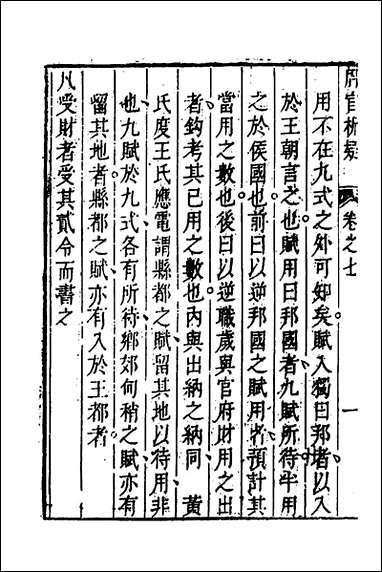 周官析疑 卷之七 一
用不在九式之外可知矣賦入獨曰邦者以入
於王朝言之也賦用曰邦國者九賦所待半用
之於侯國也前曰以逆邦國之賦用者預計其
當用之數也後曰以逆職歲與官府財用之出
者鈎考其已用之數也內與出納之納同 黃
氏度王氏應電謂縣都之賦留其地以待用非
也九賦於九式各有所待鄉郊何稍之賦亦有
留其地者縣都之賦亦有入於王都者
凡受財者受其貳令而書之